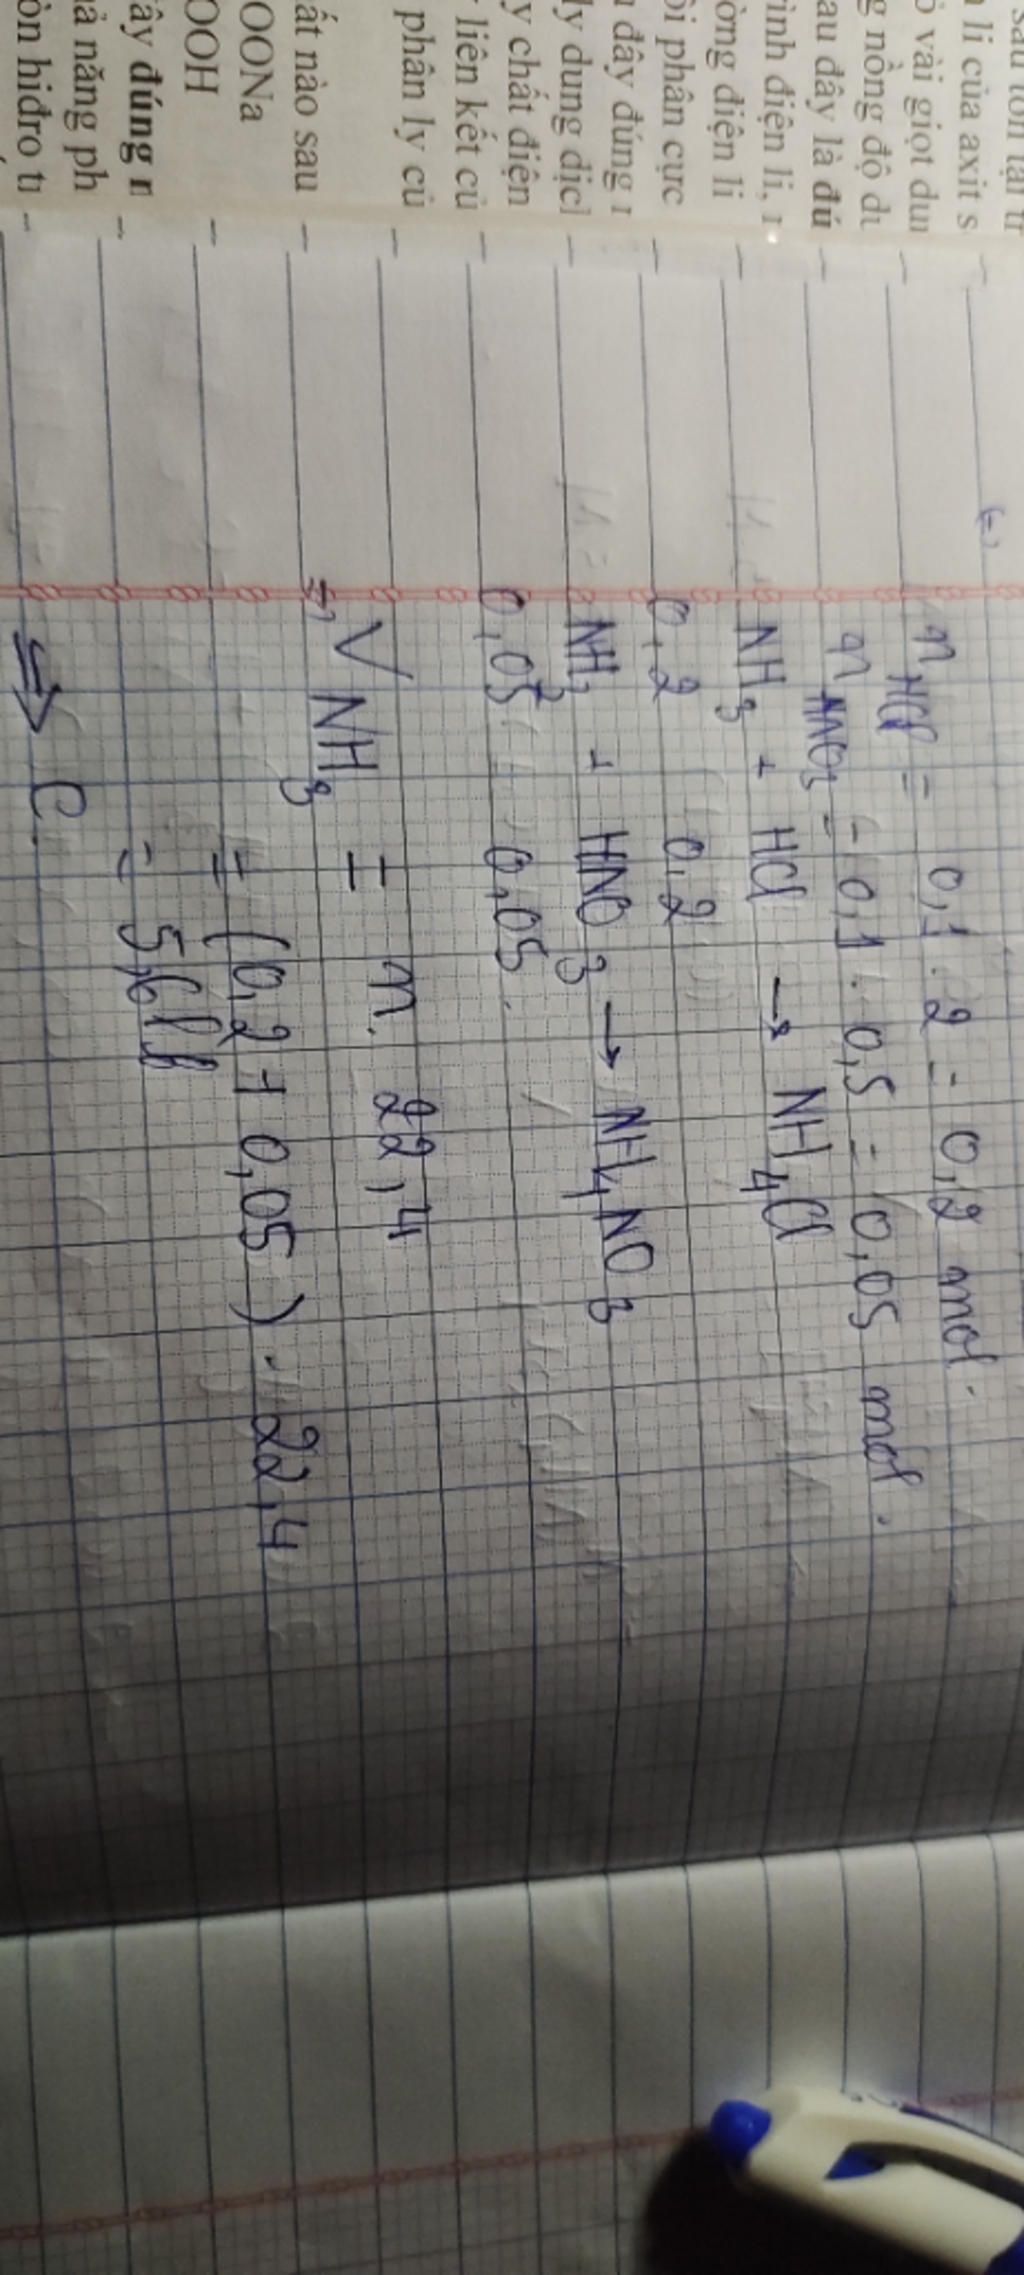 sau tồn tại
li của axit s
vài giọt
nồng độ
sau đây là
điện li,
điện li
phân cực
đây đúng
ly dung
chất điện
liên kết
phân ly
nào sau
OONa
OOH
đúng
năng
hiđro
nHCl = 0,1 . 2 = 0,2 mol.
nHNO3 = 0,1 . 0,5 = 0,05 mol.
NH3 + HCl → NH4Cl
0,2 0,2
NH3 + HNO3 → NH4NO3
0,05 0,05
=> V NH3 = n. 22,4
= (0,2 + 0,05) . 22,4
= 5,6 lít
=> C.